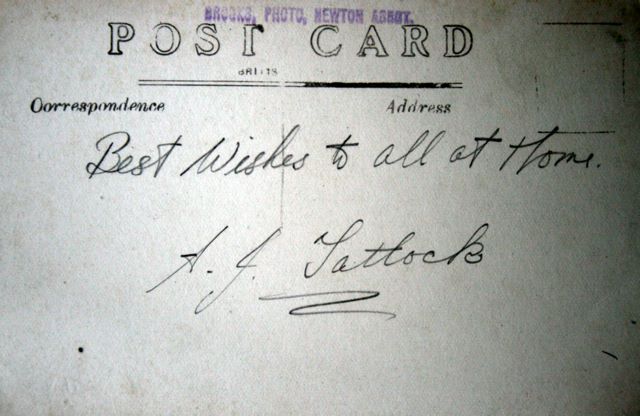 BROOKS, PHOTO, NEWTON ABBOT.
POST CARD
Correspondence Address
Best Wishes to all at Home.
A. J. Tatlock